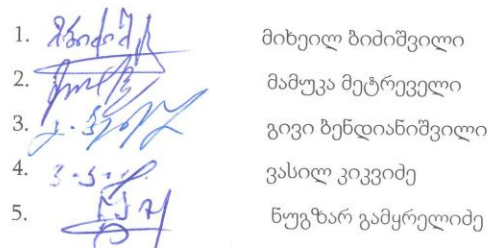 1. მიხეილ ბიძიშვილი
2. მამუკა მეტრეველი
3. გივი ბენდიანიშვილი
4. ვასილ კიკვიძე
5. ნუგზარ გამყრელიძე